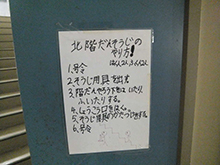 北階だんそうじの
やり方!
1.号令
2.そうじ用具を出す
3.階だんそうち下をはいたり、
ふいたりする。
4.しょうこう口をはく。
5.そうじ用具のかたづけをする。
6.号令